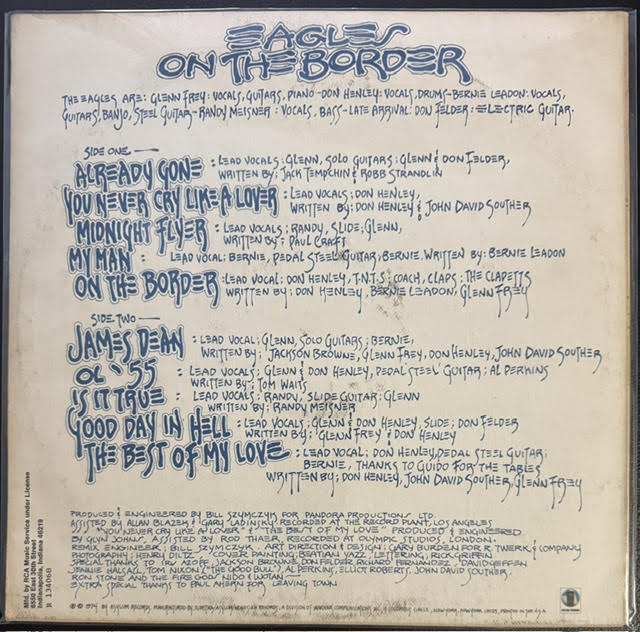 EAGLES
ON THE BORDER
THE EAGLES ARE: GLENN FREY: VOCALS, GUITARS, PIANO - DON HENLEY: VOCALS, DRUMS - BERNIE LEADON: VOCALS,
GUITARS, BANJO, STEEL GUITAR - RANDY MEISNER: VOCALS, BASS - LATE ARRIVAL: DON FELDER: ELECTRIC GUITAR.
SIDE ONE —
ALREADY GONE : LEAD VOCALS: GLENN, SOLO GUITARS: GLENN & DON FELDER,
WRITTEN BY: JACK TEMPCHIN & ROBB STRANDLIN
YOU NEVER CRY LIKE A LOVER : LEAD VOCALS: DON HENLEY,
WRITTEN BY: DON HENLEY & JOHN DAVID SOUTHER
MIDNIGHT FLYER : LEAD VOCALS: RANDY, SLIDE: GLENN,
WRITTEN BY: PAUL CRAFT
MY MAN : LEAD VOCAL: BERNIE, PEDAL STEEL GUITAR: BERNIE. WRITTEN BY: BERNIE LEADON
ON THE BORDER : LEAD VOCAL: DON HENLEY, T.N.T.S: COACH, CLAPS: THE CLAPETTS
WRITTEN BY: DON HENLEY, BERNIE LEADON, GLENN FREY
SIDE TWO —
JAMES DEAN : LEAD VOCAL: GLENN, SOLO GUITARS: BERNIE,
WRITTEN BY: JACKSON BROWNE, GLENN FREY, DON HENLEY, JOHN DAVID SOUTHER
OL' 55 : LEAD VOCALS: GLENN & DON HENLEY, PEDAL STEEL GUITAR: AL PERKINS
WRITTEN BY: TOM WAITS
IS IT TRUE : LEAD VOCALS: RANDY, SLIDE GUITAR: GLENN
WRITTEN BY: RANDY MEISNER
GOOD DAY IN HELL : LEAD VOCALS: GLENN & DON HENLEY, SLIDE: DON FELDER
WRITTEN BY: GLENN FREY & DON HENLEY
THE BEST OF MY LOVE : LEAD VOCAL: DON HENLEY, PEDAL STEEL GUITAR:
BERNIE, THANKS TO GUIDO FOR THE TABLES
WRITTEN BY: DON HENLEY, JOHN DAVID SOUTHER, GLENN FREY
PRODUCED & ENGINEERED BY BILL SZYMCZYK FOR PANDORA PRODUCTIONS LTD.
ASSISTED BY ALLAN BLAZEK & GARY LADINSKY RECORDED AT THE RECORD PLANT, LOS ANGELES
"YOU NEVER CRY LIKE A LOVER" & "THE BEST OF MY LOVE" PRODUCED & ENGINEERED
BY GLYN JOHNS, ASSISTED BY ROD THAER, RECORDED AT OLYMPIC STUDIOS, LONDON.
REMIX ENGINEER: BILL SZYMCZYK. ART DIRECTION & DESIGN: GARY BURDEN FOR R. TWERK & COMPANY
PHOTOGRAPHY: HENRY DILTZ. COVER PAINTING: BEATIAN YAZZ. LETTERING: RICK GRIFFIN
SPECIAL THANKS TO IRV AZOFF, JACKSON BROWNE, DON FELDER, RICHARD FERNANDEZ, DAVID GEFFEN
JENNIE HALSALL, TOM NIXON ("THE GOOD BULL"), AL PERKINS, ELLIOT ROBERTS, JOHN DAVID SOUTHER,
RON STONE AND THE FIRE GODS NIDO & WOTAN —
EXTRA SPECIAL THANKS TO PAUL AHERN FOR LEAVING TOWN
℗ © 1974 BY ASYLUM RECORDS.
Mfd. by RCA Music Service under License
6550 East 30th Street
Indianapolis, Indiana 46219
R 134068